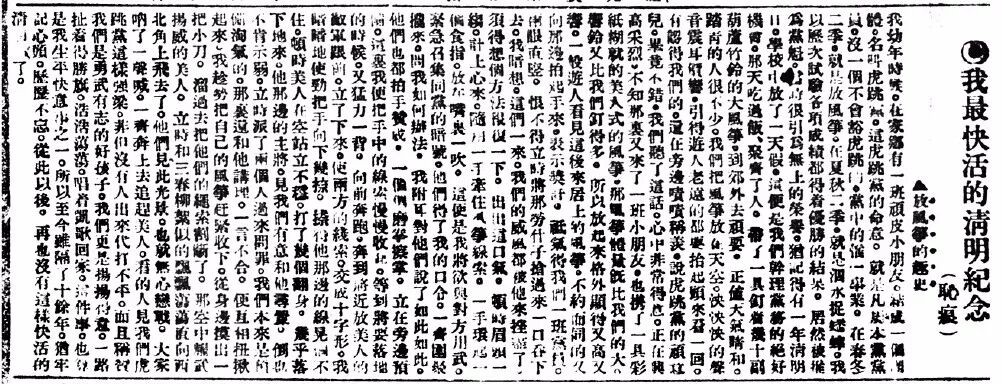 我最快活的淸明紀念
(恥痕)
▲放風箏的趣史
我幼年時候。在家鄕有一班頑皮小朋友。結成一個團
體。名叫虎跳黨。這虎跳黨的命意。就是凡是本黨黨
員。沒一個不會豁虎跳的。黨中的
二季。就是放風箏。在夏秋二季。就是
以歷次試驗各項成績都得着優勝的結果。居然被推
爲黨魁。當時很引爲無上的榮譽。猶記得有一年清明
日。學校中放了一天假。這便是我們幹理黨務的絕好
機會。那天吃過飯。聚齊了人。帶了一具釘着幾十副
葫蘆竹鈴的大風箏。到郊外去頑耍。正値天氣晴和。
踏靑的人很不少。我們把風箏放在天空。泱泱的聲
音。震耳響。引得遊人老遠的都要抬起頭來看一回。
有認得我們的。還在旁邊嘖嘖稱羨。說虎跳黨的頑
兒。果竟不錯。我們聽了這話。心中非常得意。正在興
高采烈。不知那裏又來了一班小朋友。也携了一具彩
紙糊就的美人式的風箏。那風箏體量旣比我們的大。
響鈴又比我們釘得多。所以放起來格外顯得又高又
響。一般遊人看見這後來居上的風箏。不約而同的又
向那邊拍起手來。表示獎許。祗氣得我們一班黨員。
兩眼直竪。恨不得立時將那勞什子搶過來一口吞下
去。我暗想。這們一來。我們的威風都被他來挫盡了。
須得想個方法報復一下。出出這口氣。頓時眉頭一
縐。計上心來。隨用一手牽住風箏綫索。一手攝起一
個食指。放在嘴裏一吹。這便是我將欲與對方用武。
緊急召集同黨的暗號。他們得了我的口令。一齊圍繞
攏來。問我如何辦法。我附耳對他們說了如此如此。
他們也都拍手贊成。一個個磨拳擦掌。立在旁邊預
備。這裏我便把手中的綫索慢慢收
的時候。又猛力一背。向前奔跑。奔到將近放美人的
敵軍跟前。立了下來。使兩方的綫索。交成十字形。我
暗暗地使勁把手向下幾捺。
住。頓時美人在空站立不穩。打了幾個翻身。幾乎落
下地來。他那邊的主將。見我們有意和他尋釁。倒也
不肯示弱。立時派了兩個人過來問罪。我們本來是有
個淘氣的。那裏還和他講理。一言不合。便互相扭揪
起來。我趁勢把自己的風箏趕緊收下。從身邊摸出一
把小刀。溜過去把他們的繩索割斷了。那空中
揚威的美人。立時和三春柳絮似的飄飄蕩蕩直向西
北角上飛去了。他們見此光景。也就無心戀戰。大家
吶了一聲喊。一齊奔上去追起美人。看的人見我們虎
跳黨這樣強梁。非但沒有人出來代打不平。而且稱
我們是勇武有志的好孩子。我們更是揚揚得意。一路
扯着得勝旗。浩浩蕩蕩。唱着凱歌回家。這件事。也
是我生平快意事之一。所以至今雖隔了十餘年。猶牢
記心頭。歷歷不忘。從此以後。再也沒有這樣快活的
淸明了。